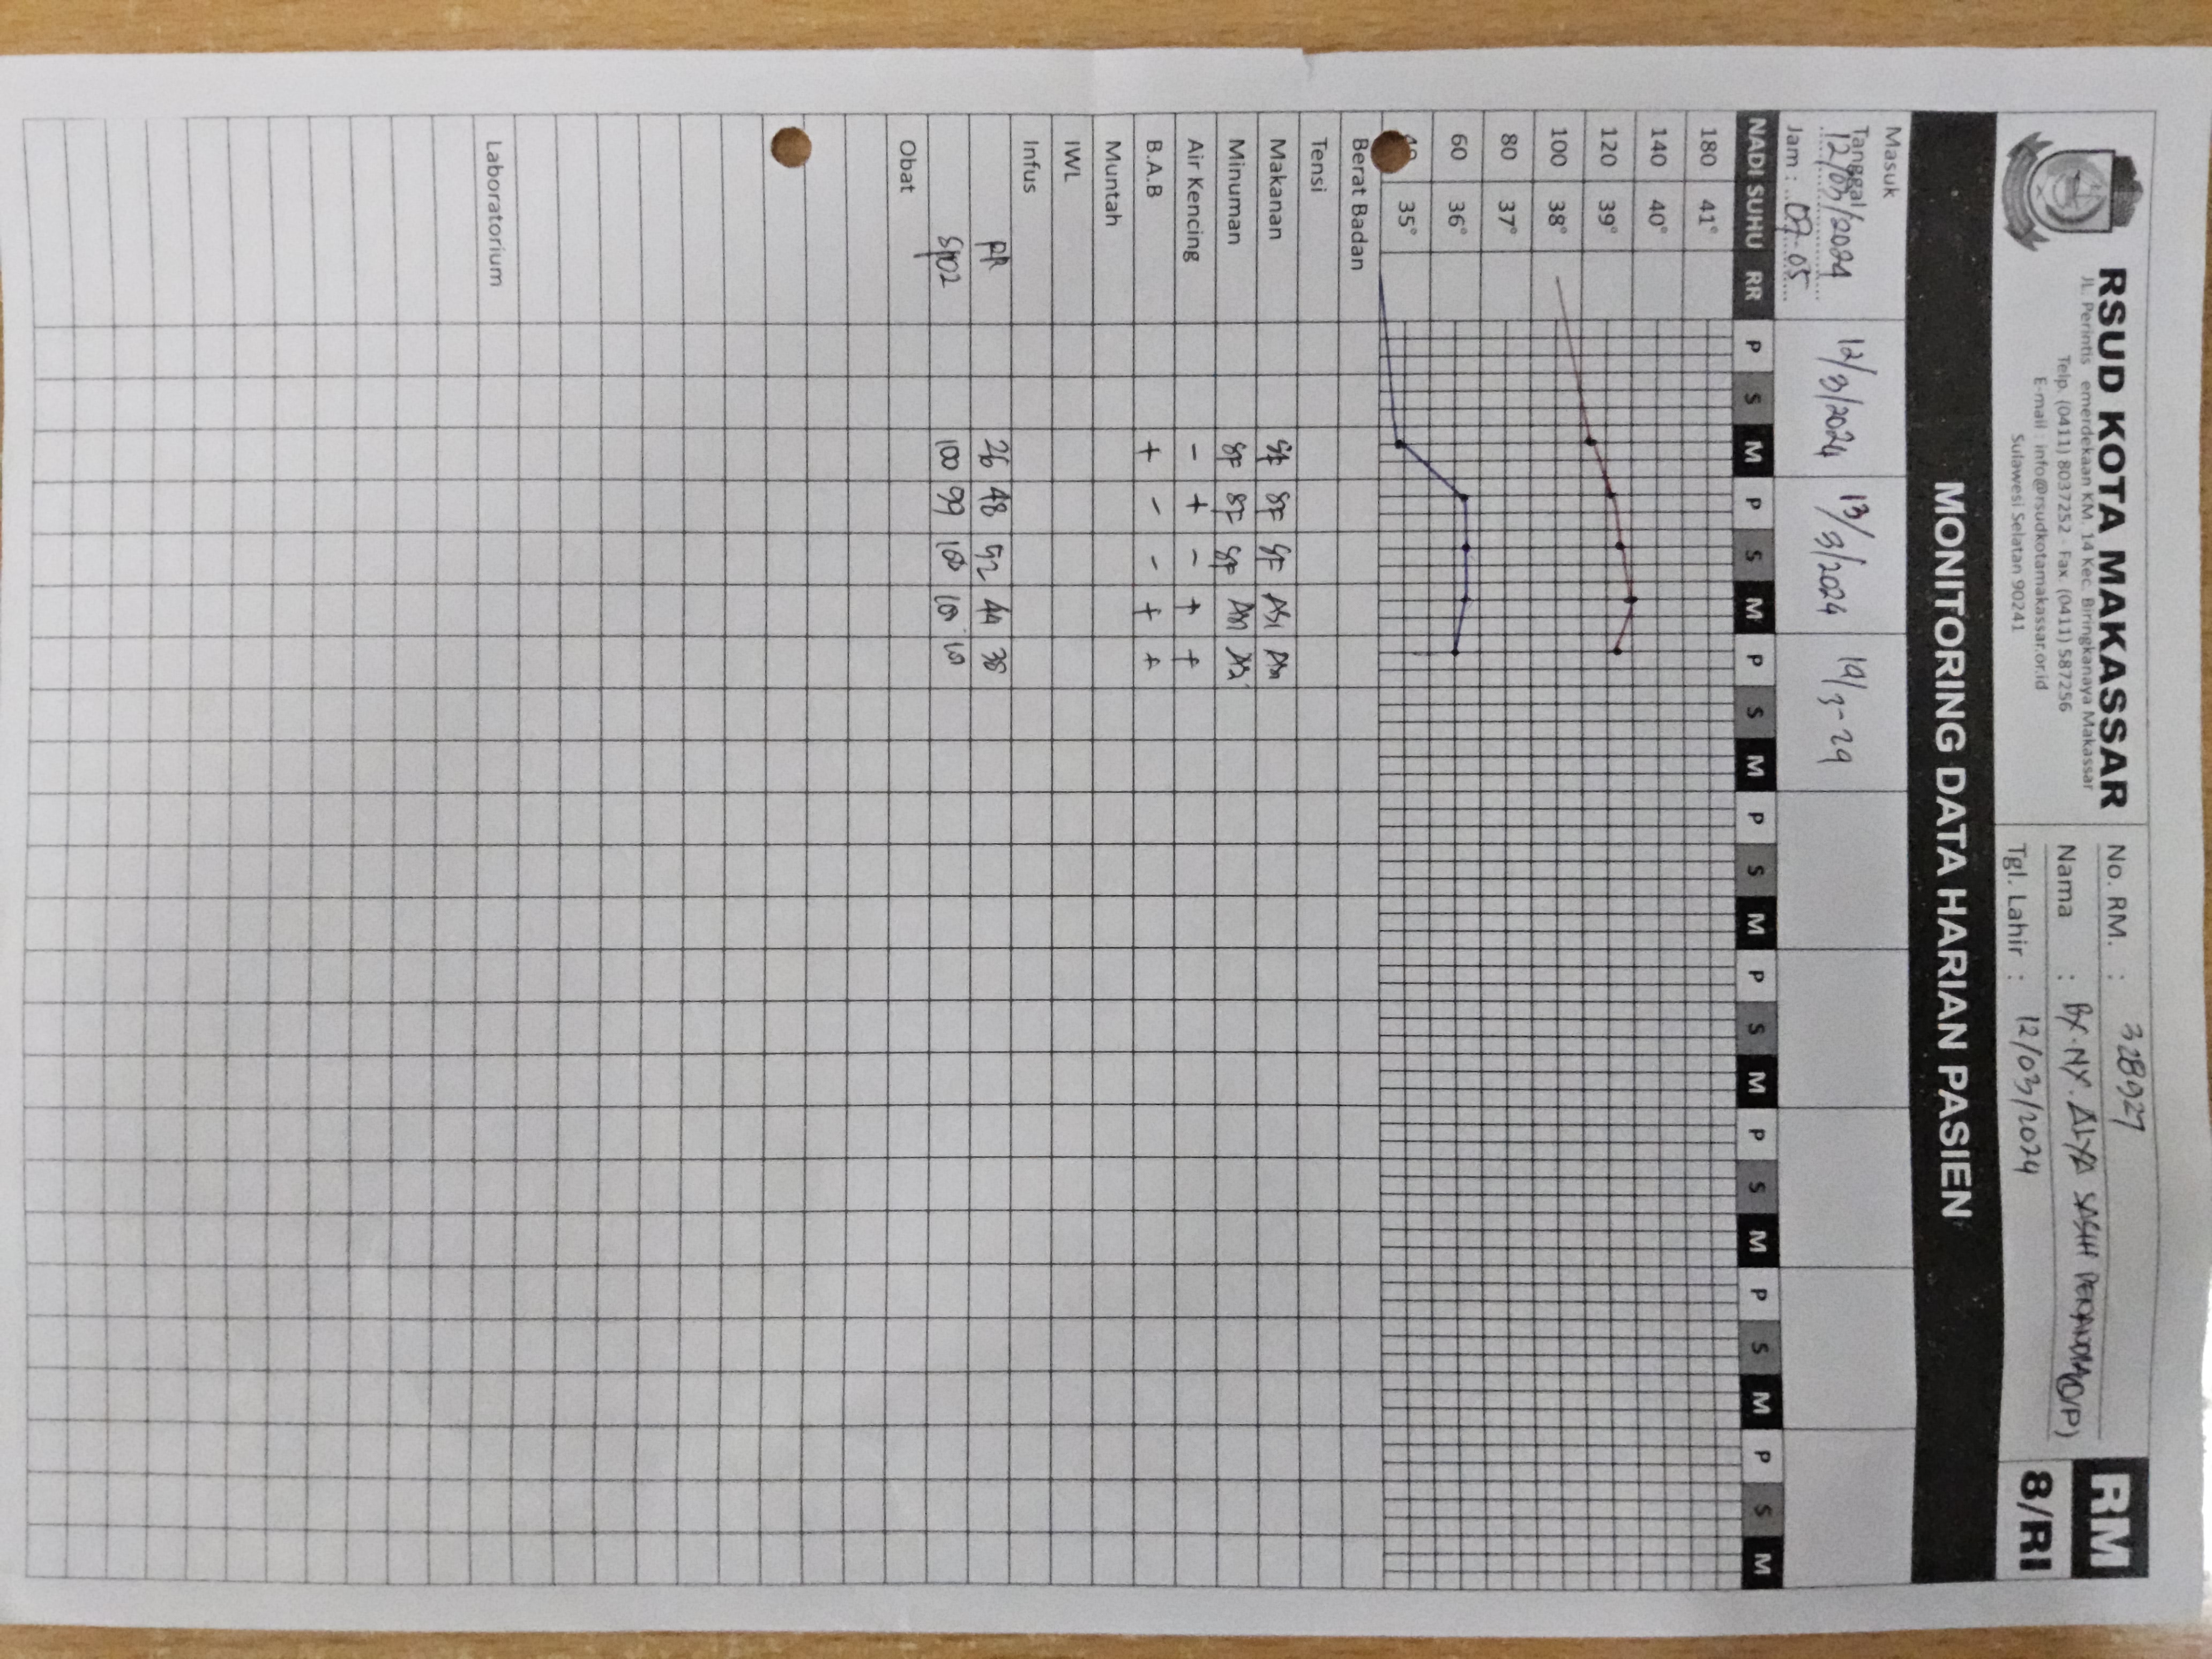 RSUD KOTA MAKASSAR
JL. Perintis emerdekaan KM. 14 Kec. Biringkanaya Makassar
Telp. (0411) 8037252 - Fax. (0411) 587256
E-mail : info@rsudkotamakassar.or.id
Sulawesi Selatan 90241
No. RM. : 328927
Nama : BY. NY. ALYA SASIH (P)
Tgl. Lahir : 12/03/2024
RM
8/RI
MONITORING DATA HARIAN PASIEN
Masuk
Tanggal 12/03/2024 12/3/2024 13/3/2024 14/3-24
Jam : 07.05
NADI SUHU RR P S M P S M P S M P S M P S M P S M P S M P S M
180 41°
140 40°
120 39°
100 38°
80 37°
60 36°
40 35°
Berat Badan
Tensi
Makanan SF SF SF ASI
Minuman SF SF SF
Air Kencing - + - + +
B.A.B + - - + +
Muntah
IWL
Infus
RR 26 48 52 44 38
SPO2 100 99 100
Obat
Laboratorium